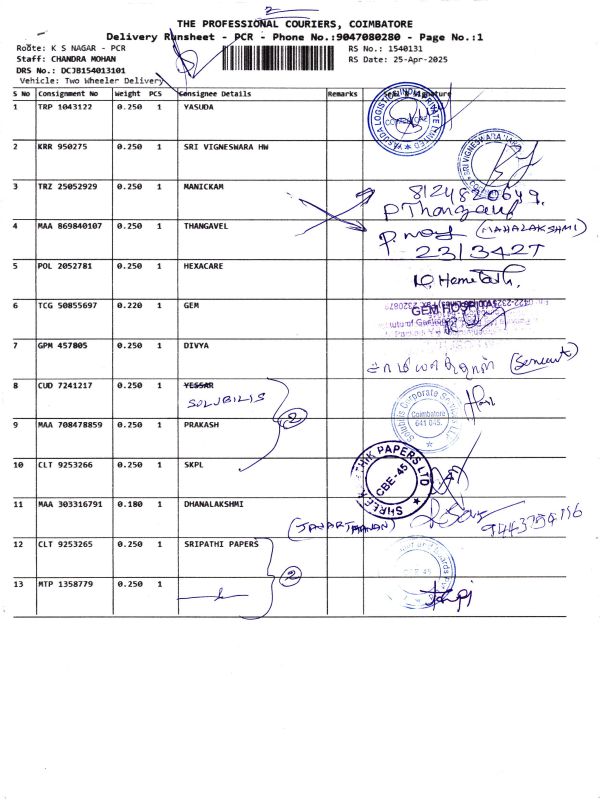 2
THE PROFESSIONAL COURIERS, COIMBATORE
Delivery Runsheet - PCR - Phone No.:9047080280 - Page No.:1
Route: K S NAGAR - PCR
RS No.: 1540131
Staff: CHANDRA MOHAN
RS Date: 25-Apr-2025
DRS No.: DCJB154013101
Vehicle: Two Wheeler Delivery
S No Consignment No Weight PCS Consignee Details Remarks & Signature
1 TRP 1043122 0.250 1 YASUDA
YASUDA LOGISTICS INDIA PRIVATE LIMITED
2 KRR 950275 0.250 1 SRI VIGNESWARA HW
SRI VIGNESWARA
3 TRZ 25052929 0.250 1 MANICKAM
8124820649.
P Thangavel
4 MAA 869840107 0.250 1 THANGAVEL
(MAHALAKSHMI)
2313427
5 POL 2052781 0.250 1 HEXACARE
6 TCG 50855697 0.220 1 GEM
GEM HOSPITAL
7 GPM 457805 0.250 1 DIVYA
(Servant)
8 CUD 7241217 0.250 1 YESSAR
SOLUBILIS
Solubilis Corporate Services
Coimbatore
641 045.
2
9 MAA 708478859 0.250 1 PRAKASH
10 CLT 9253266 0.250 1 SKPL
PAPERS LTD
CBE-45
11 MAA 303316791 0.180 1 DHANALAKSHMI
(JANARTHANAN)
12 CLT 9253265 0.250 1 SRIPATHI PAPERS
2
13 MTP 1358779 0.250 1